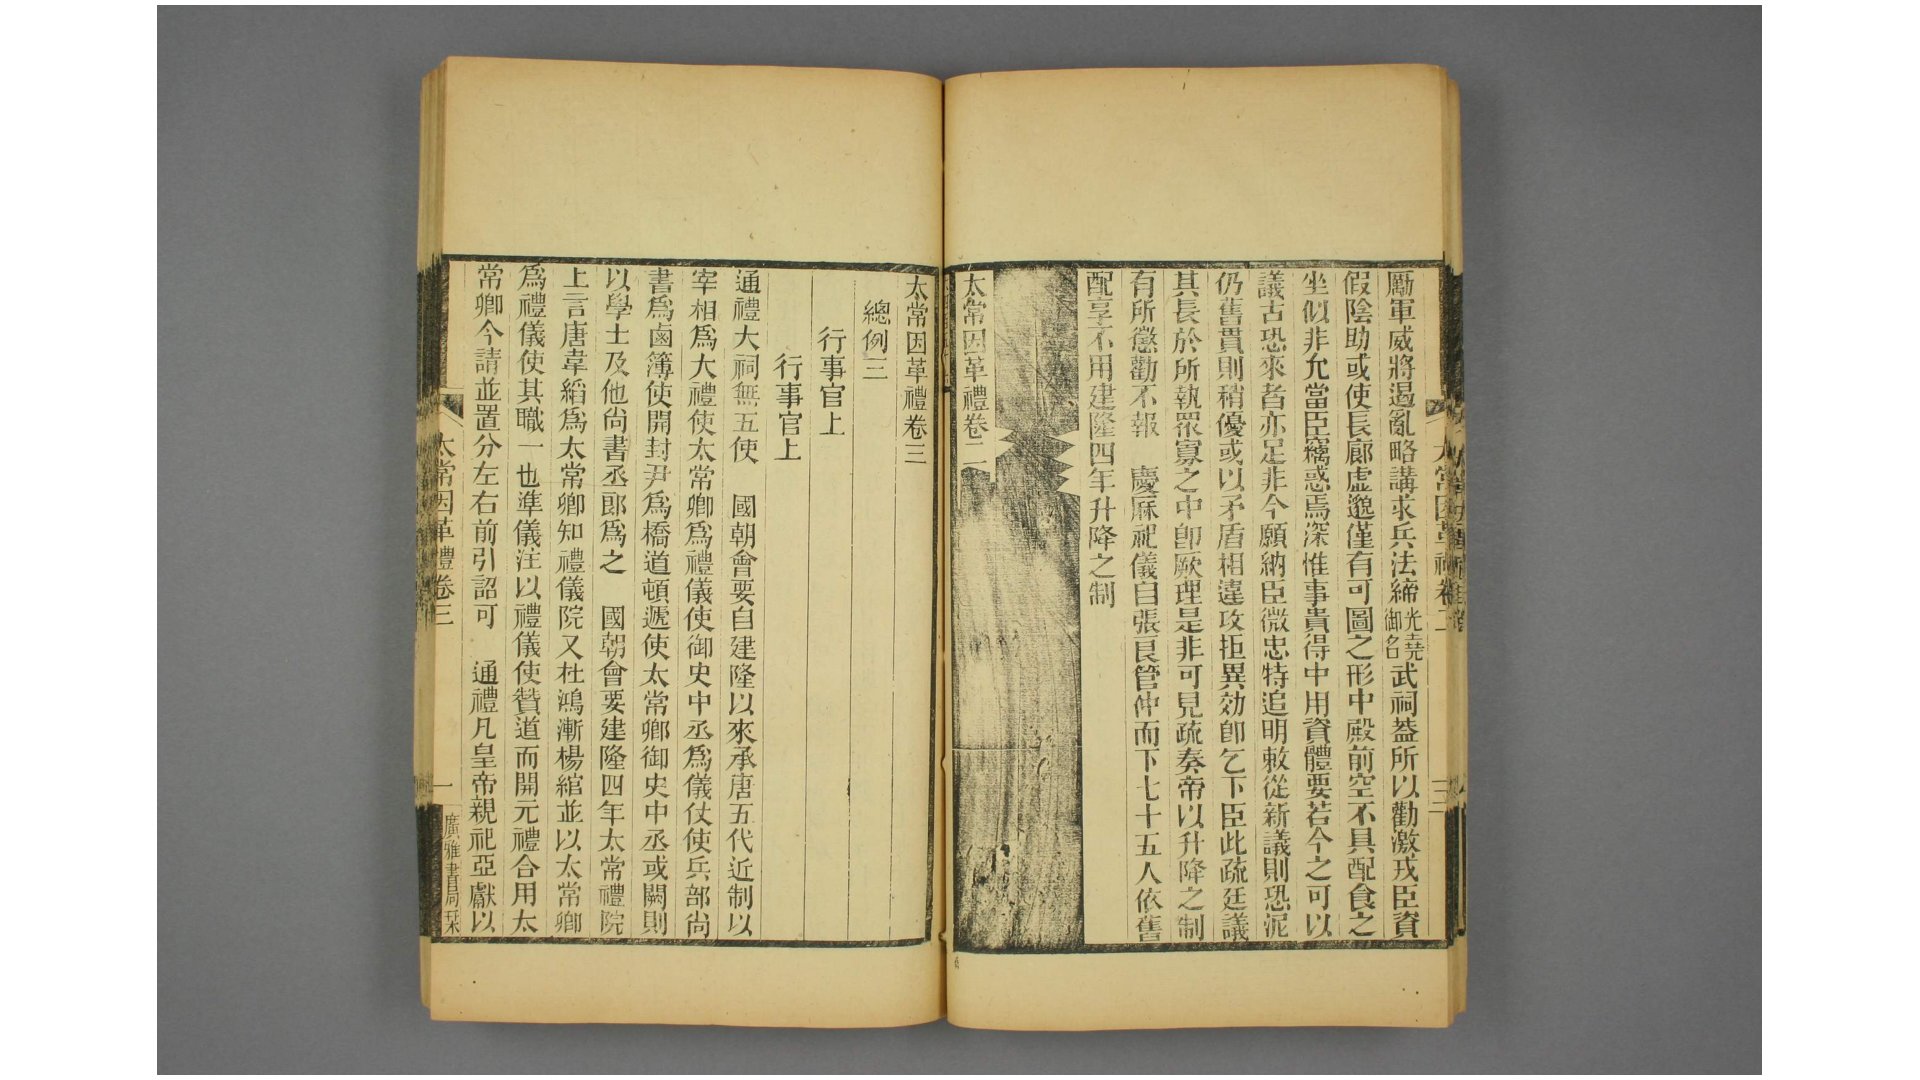 太常因革禮卷二
三
厲軍威將遏亂略講求兵法締光堯御名武祠葢所以勸激戎臣資
假陰助或使長廊虛邈僅有可圖之形中殿前空不具配食之
坐似非允當臣竊惑焉深惟事貴得中用資體要若今之可以
議古恐來者亦足非今願納臣微忠特追明敕從新議則恐泥
仍舊貫則稍優或以矛盾相違攻拒異効卽乞下臣此疏廷議
其長於所執眾寡之中卽厥理是非可見疏奏帝以升降之制
有所懲勸不報 慶厤祀儀自張良管仲而下七十五人依舊
配享不用建隆四年升降之制
太常因革禮卷二
太常因革禮卷三
總例三
行事官上
行事官上
通禮大祠無五使 國朝會要自建隆以來承唐五代近制以
宰相爲大禮使太常卿爲禮儀使御史中丞爲儀仗使兵部尚
書爲鹵簿使開封尹爲橋道頓遞使太常卿御史中丞或闕則
以學士及他尚書丞郎爲之 國朝會要建隆四年太常禮院
上言唐韋縚爲太常卿知禮儀院又杜鴻漸楊綰並以太常卿
爲禮儀使其職一也準儀注以禮儀使贊道而開元禮合用太
常卿今請並置分左右前引詔可 通禮凡皇帝親祀亞獻以
太常因革禮卷三
一
廣雅書局栞